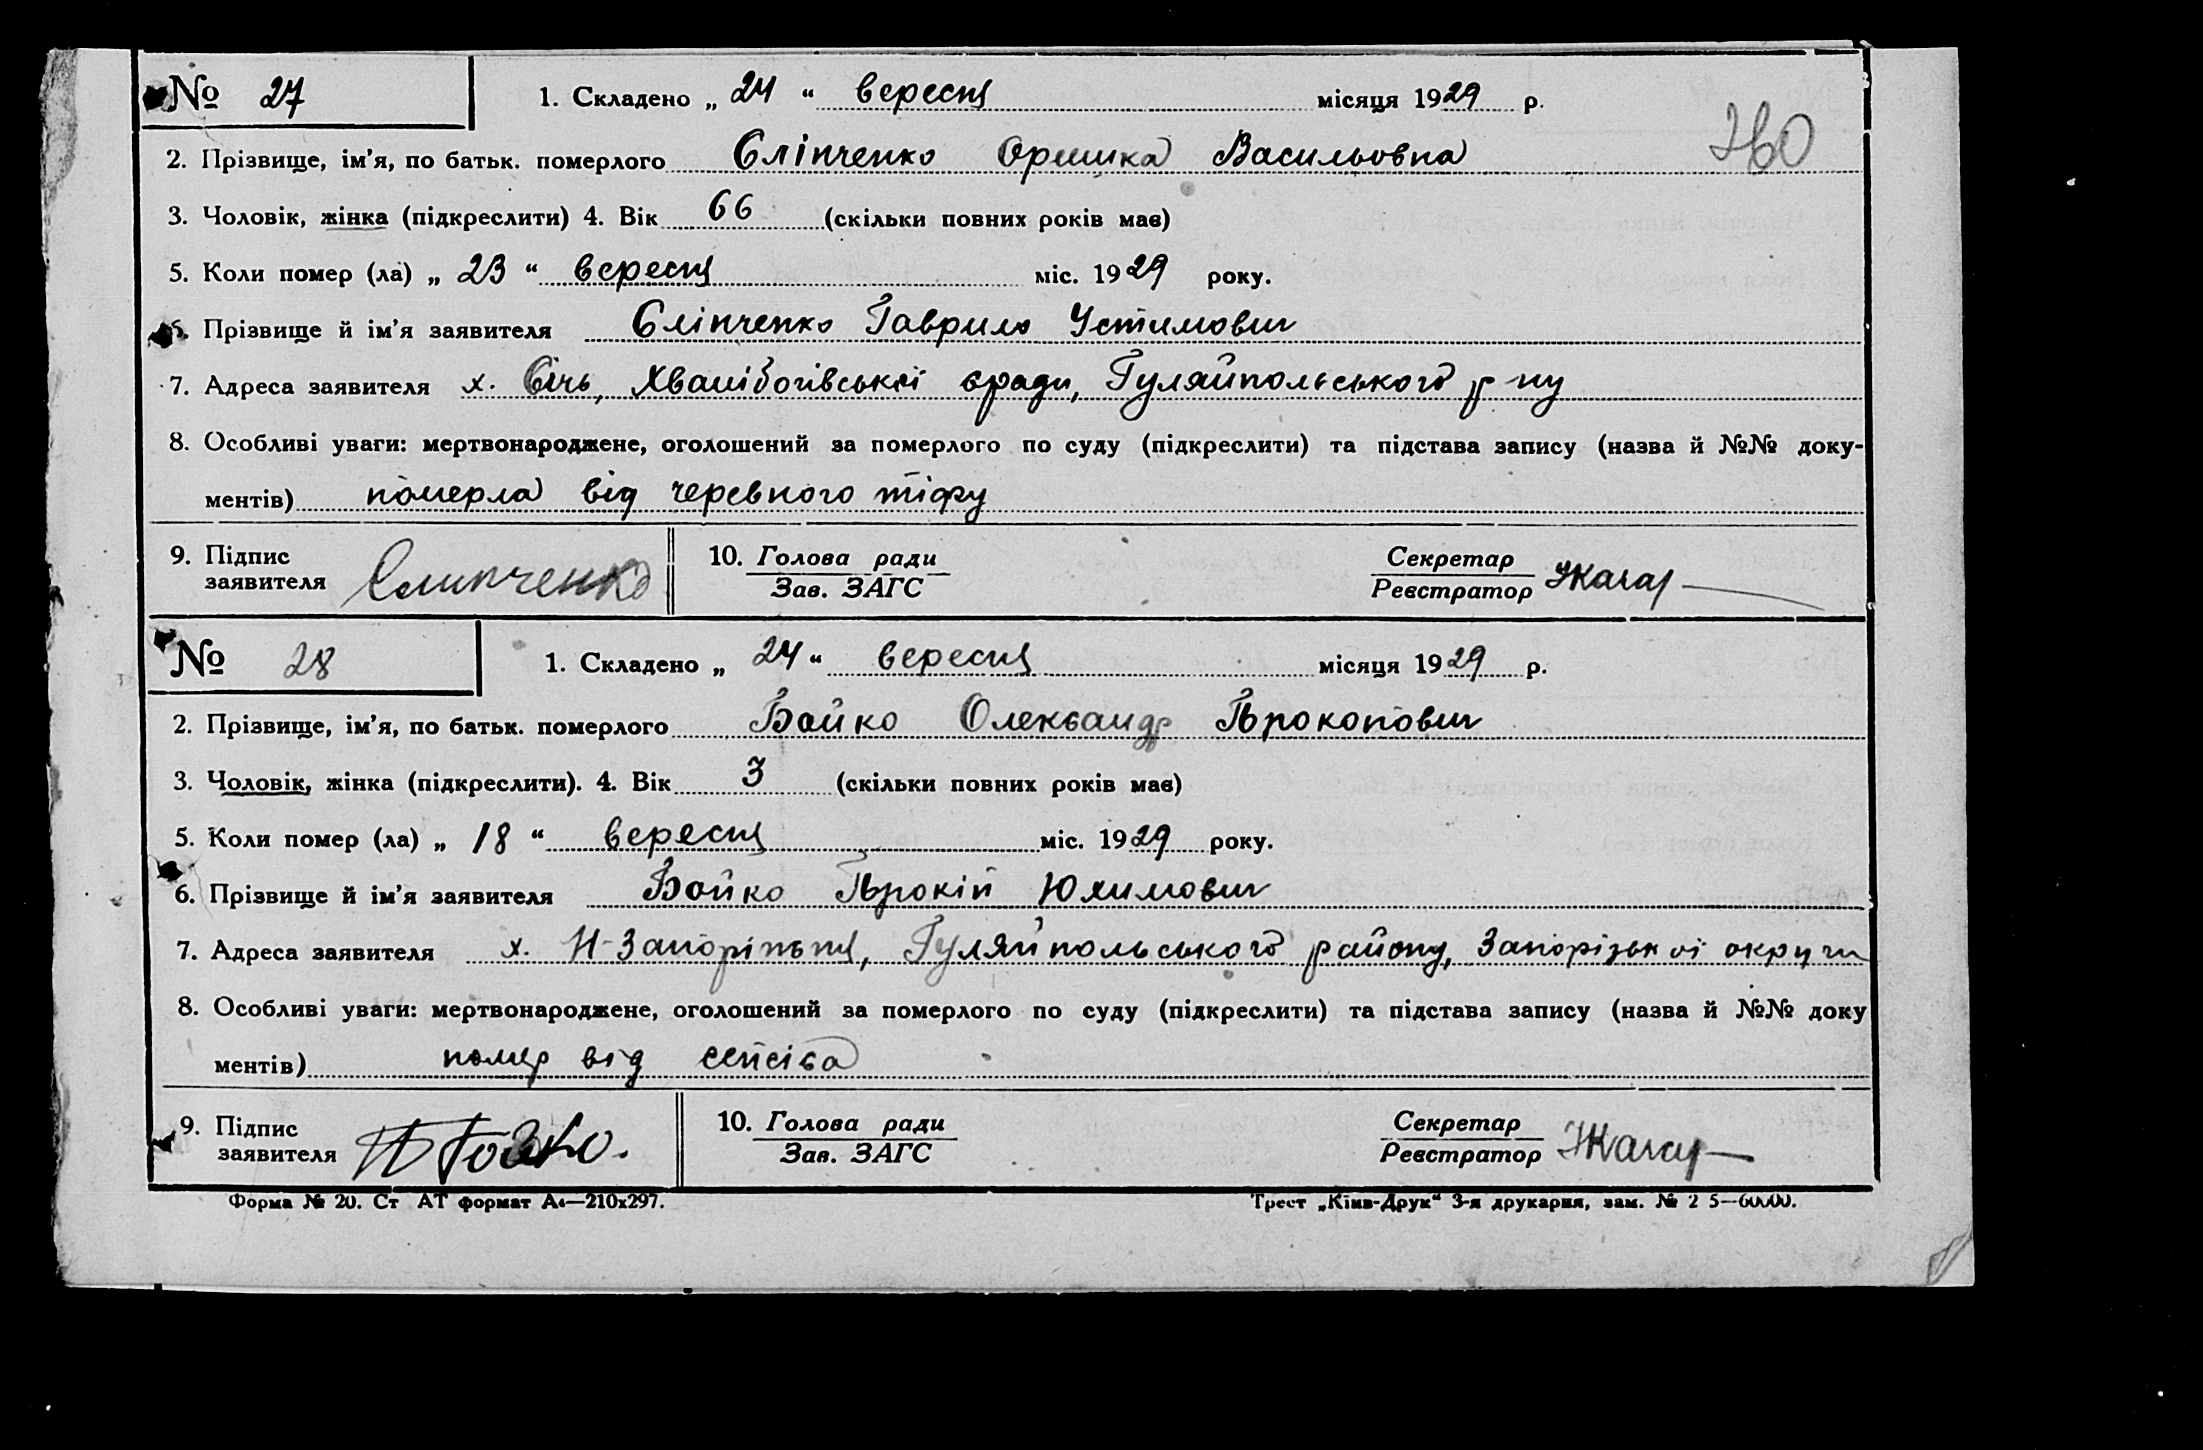 № 27
1. Складено „ 24 “ вересня місяця 1929 р.
2. Прізвище, ім'я, по батьк. померлого Сліпченко Оришка Васильовна
3. Чоловік, жінка (підкреслити) 4. Вік 66 (скільки повних років має)
5. Коли помер (ла) „ 23 “ вересня міс. 1929 року.
6. Прізвище й ім'я заявителя Сліпченко Гаврило Устимович
7. Адреса заявителя х. Січь, сради, Гуляйпольського р-ну
8. Особливі уваги: мертвонароджене, оголошений за померлого по суду (підкреслити) та підстава запису (назва й №№ доку-
ментів) померла від черевного тіфу
9. Підпис заявителя Слипченко
10. Голова ради
Зав. ЗАГС
Секретар
Реєстратор
№ 28
1. Складено „ 24 “ вересня місяця 1929 р.
2. Прізвище, ім'я, по батьк. померлого Бойко Олександр Прокопович
3. Чоловік, жінка (підкреслити). 4. Вік 3 (скільки повних років має)
5. Коли помер (ла) „ 18 “ вересня міс. 1929 року.
6. Прізвище й ім'я заявителя Бойко Прокіп Юхимович
7. Адреса заявителя х. Н-Запоріжья, Гуляйпольського району, Запорізької округи
8. Особливі уваги: мертвонароджене, оголошений за померлого по суду (підкреслити) та підстава запису (назва й №№ доку
ментів) помер від сепсіса
9. Підпис заявителя П Бойко.
10. Голова ради
Зав. ЗАГС
Секретар
Реєстратор
Форма № 20. Ст АТ формат А4—210х297.
Трест „Київ-Друк“ 3-я друкарня, зам. №